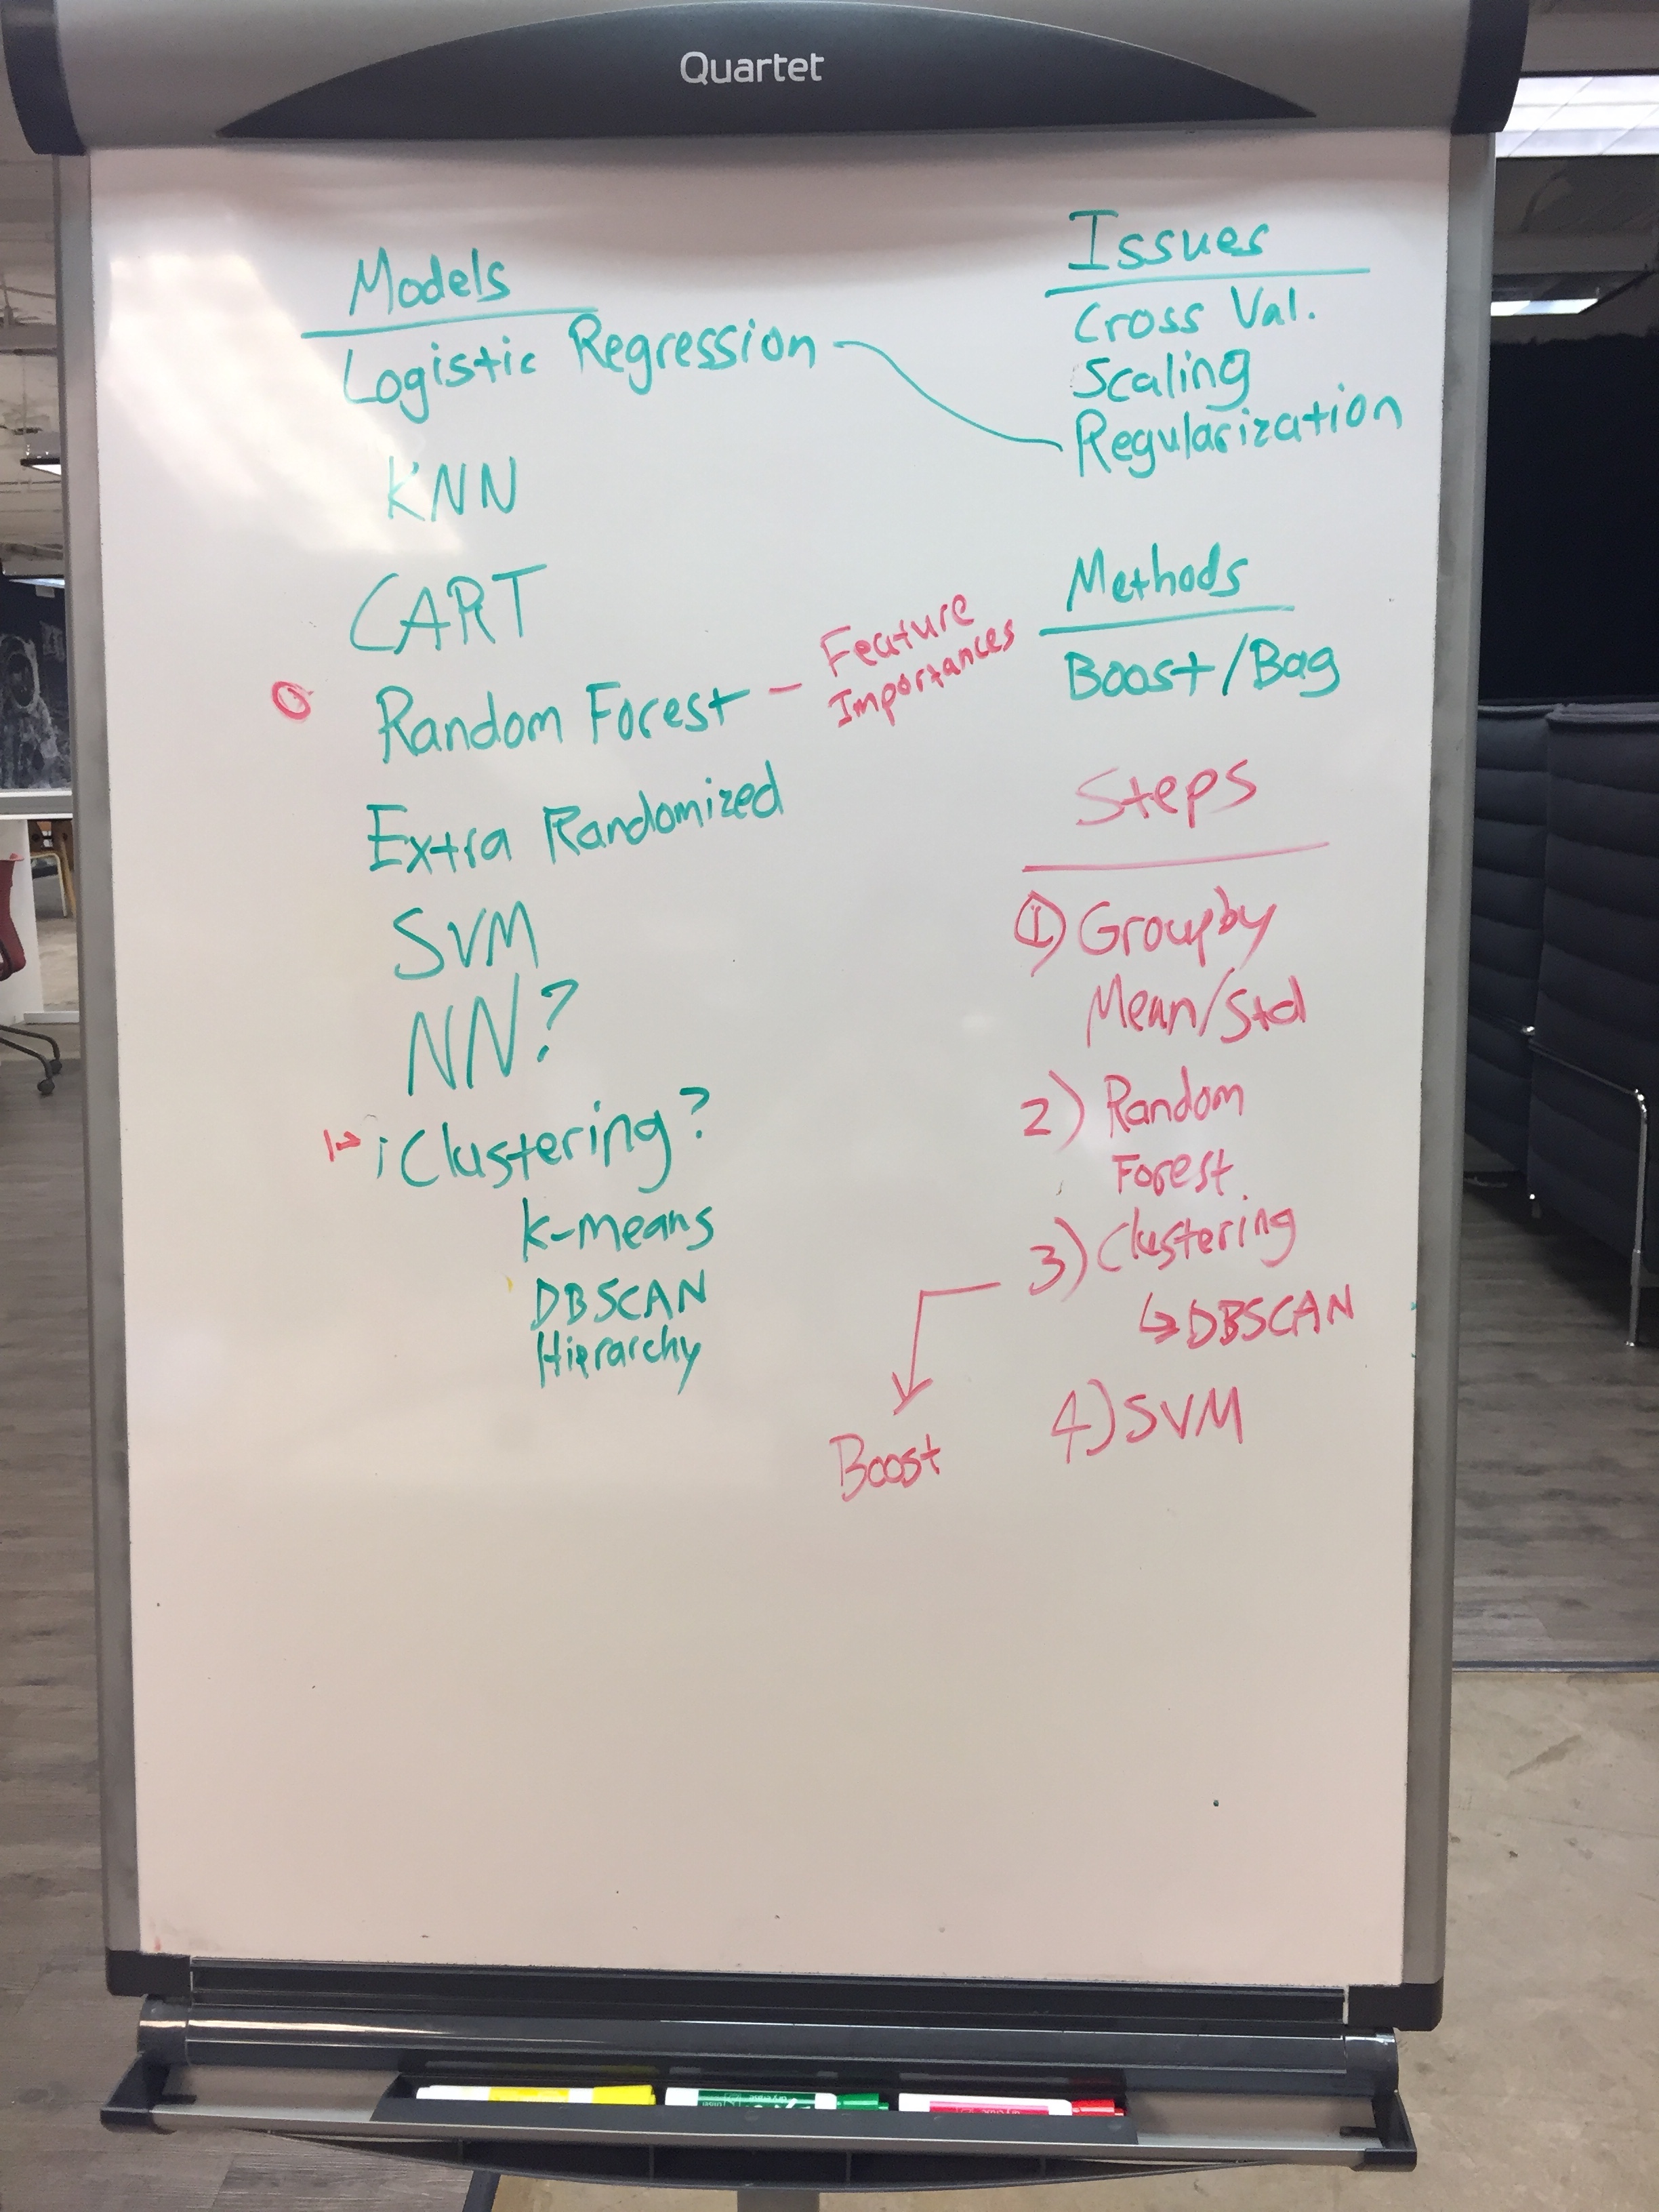 Quartet
Models
Logistic Regression
KNN
CART
Random Forest - Feature
Importances
Extra Randomized
SVM
NN?
¡Clustering?
k-means
DBSCAN
Hierarchy
Issues
Cross Val.
Scaling
Regularization
Methods
Boost/Bag
Steps
① Groupby
Mean/Std
2) Random
Forest
3) Clustering
↳ DBSCAN
Boost
4) SVM